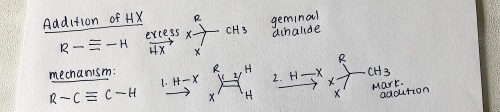 Addition of HX
R - ≡ - H excess HX → R X X CH3 geminal dihalide
mechanism:
R - C ≡ C - H 1. H-X → R H X H 1 2 2. H-X → R X X CH3 Mark. addition